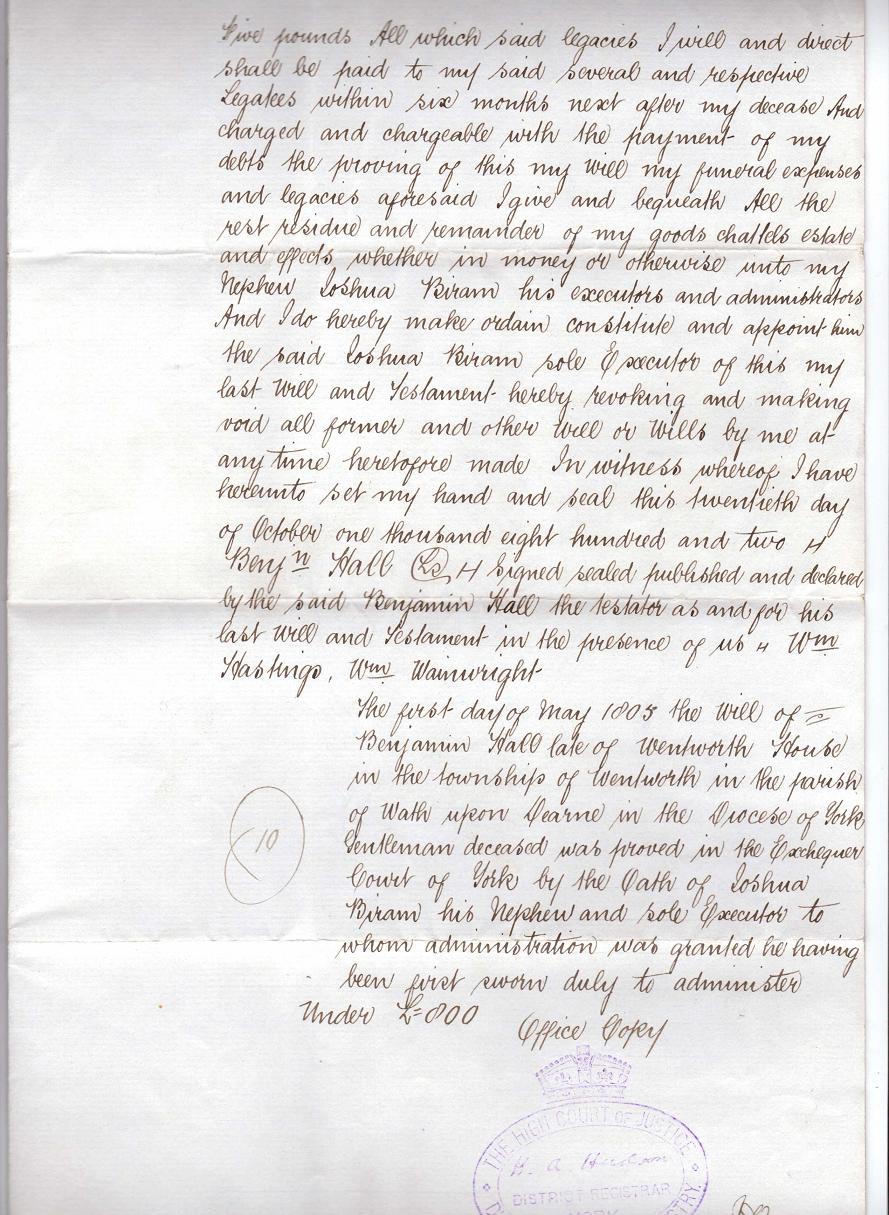 Five pounds All which said legacies I will and direct
shall be paid to my said several and respective
Legatees within six months next after my decease And
charged and chargeable with the payment of my
debts the proving of this my Will my funeral expenses
and legacies aforesaid I give and bequeath All the
rest residue and remainder of my goods chattels estate
and effects whether in money or otherwise unto my
Nephew Joshua Biram his executors and administrators
And I do hereby make ordain constitute and appoint him
the said Joshua Biram sole Executor of this my
last Will and Testament hereby revoking and making
void all former and other Will or Wills by me at
any time heretofore made In witness whereof I have
hereunto set my hand and seal this twentieth day
of October one thousand eight hundred and two
Benjn Hall (Ls) Signed sealed published and declared
by the said Benjamin Hall the testator as and for his
last Will and Testament in the presence of us Wm
Hastings, Wm Wainwright
The first day of May 1805 the Will of =
Benjamin Hall late of Wentworth House
in the township of Wentworth in the parish
of Wath upon Dearne in the Diocese of York
Gentleman deceased was proved in the Exchequer
Court of York by the Oath of Joshua
Biram his Nephew and sole Executor to
whom administration was granted he having
been first sworn duly to administer
10
Under £=800
Office Copy
THE HIGH COURT OF JUSTICE
H. A. Hudson
DISTRICT REGISTRAR
YORK